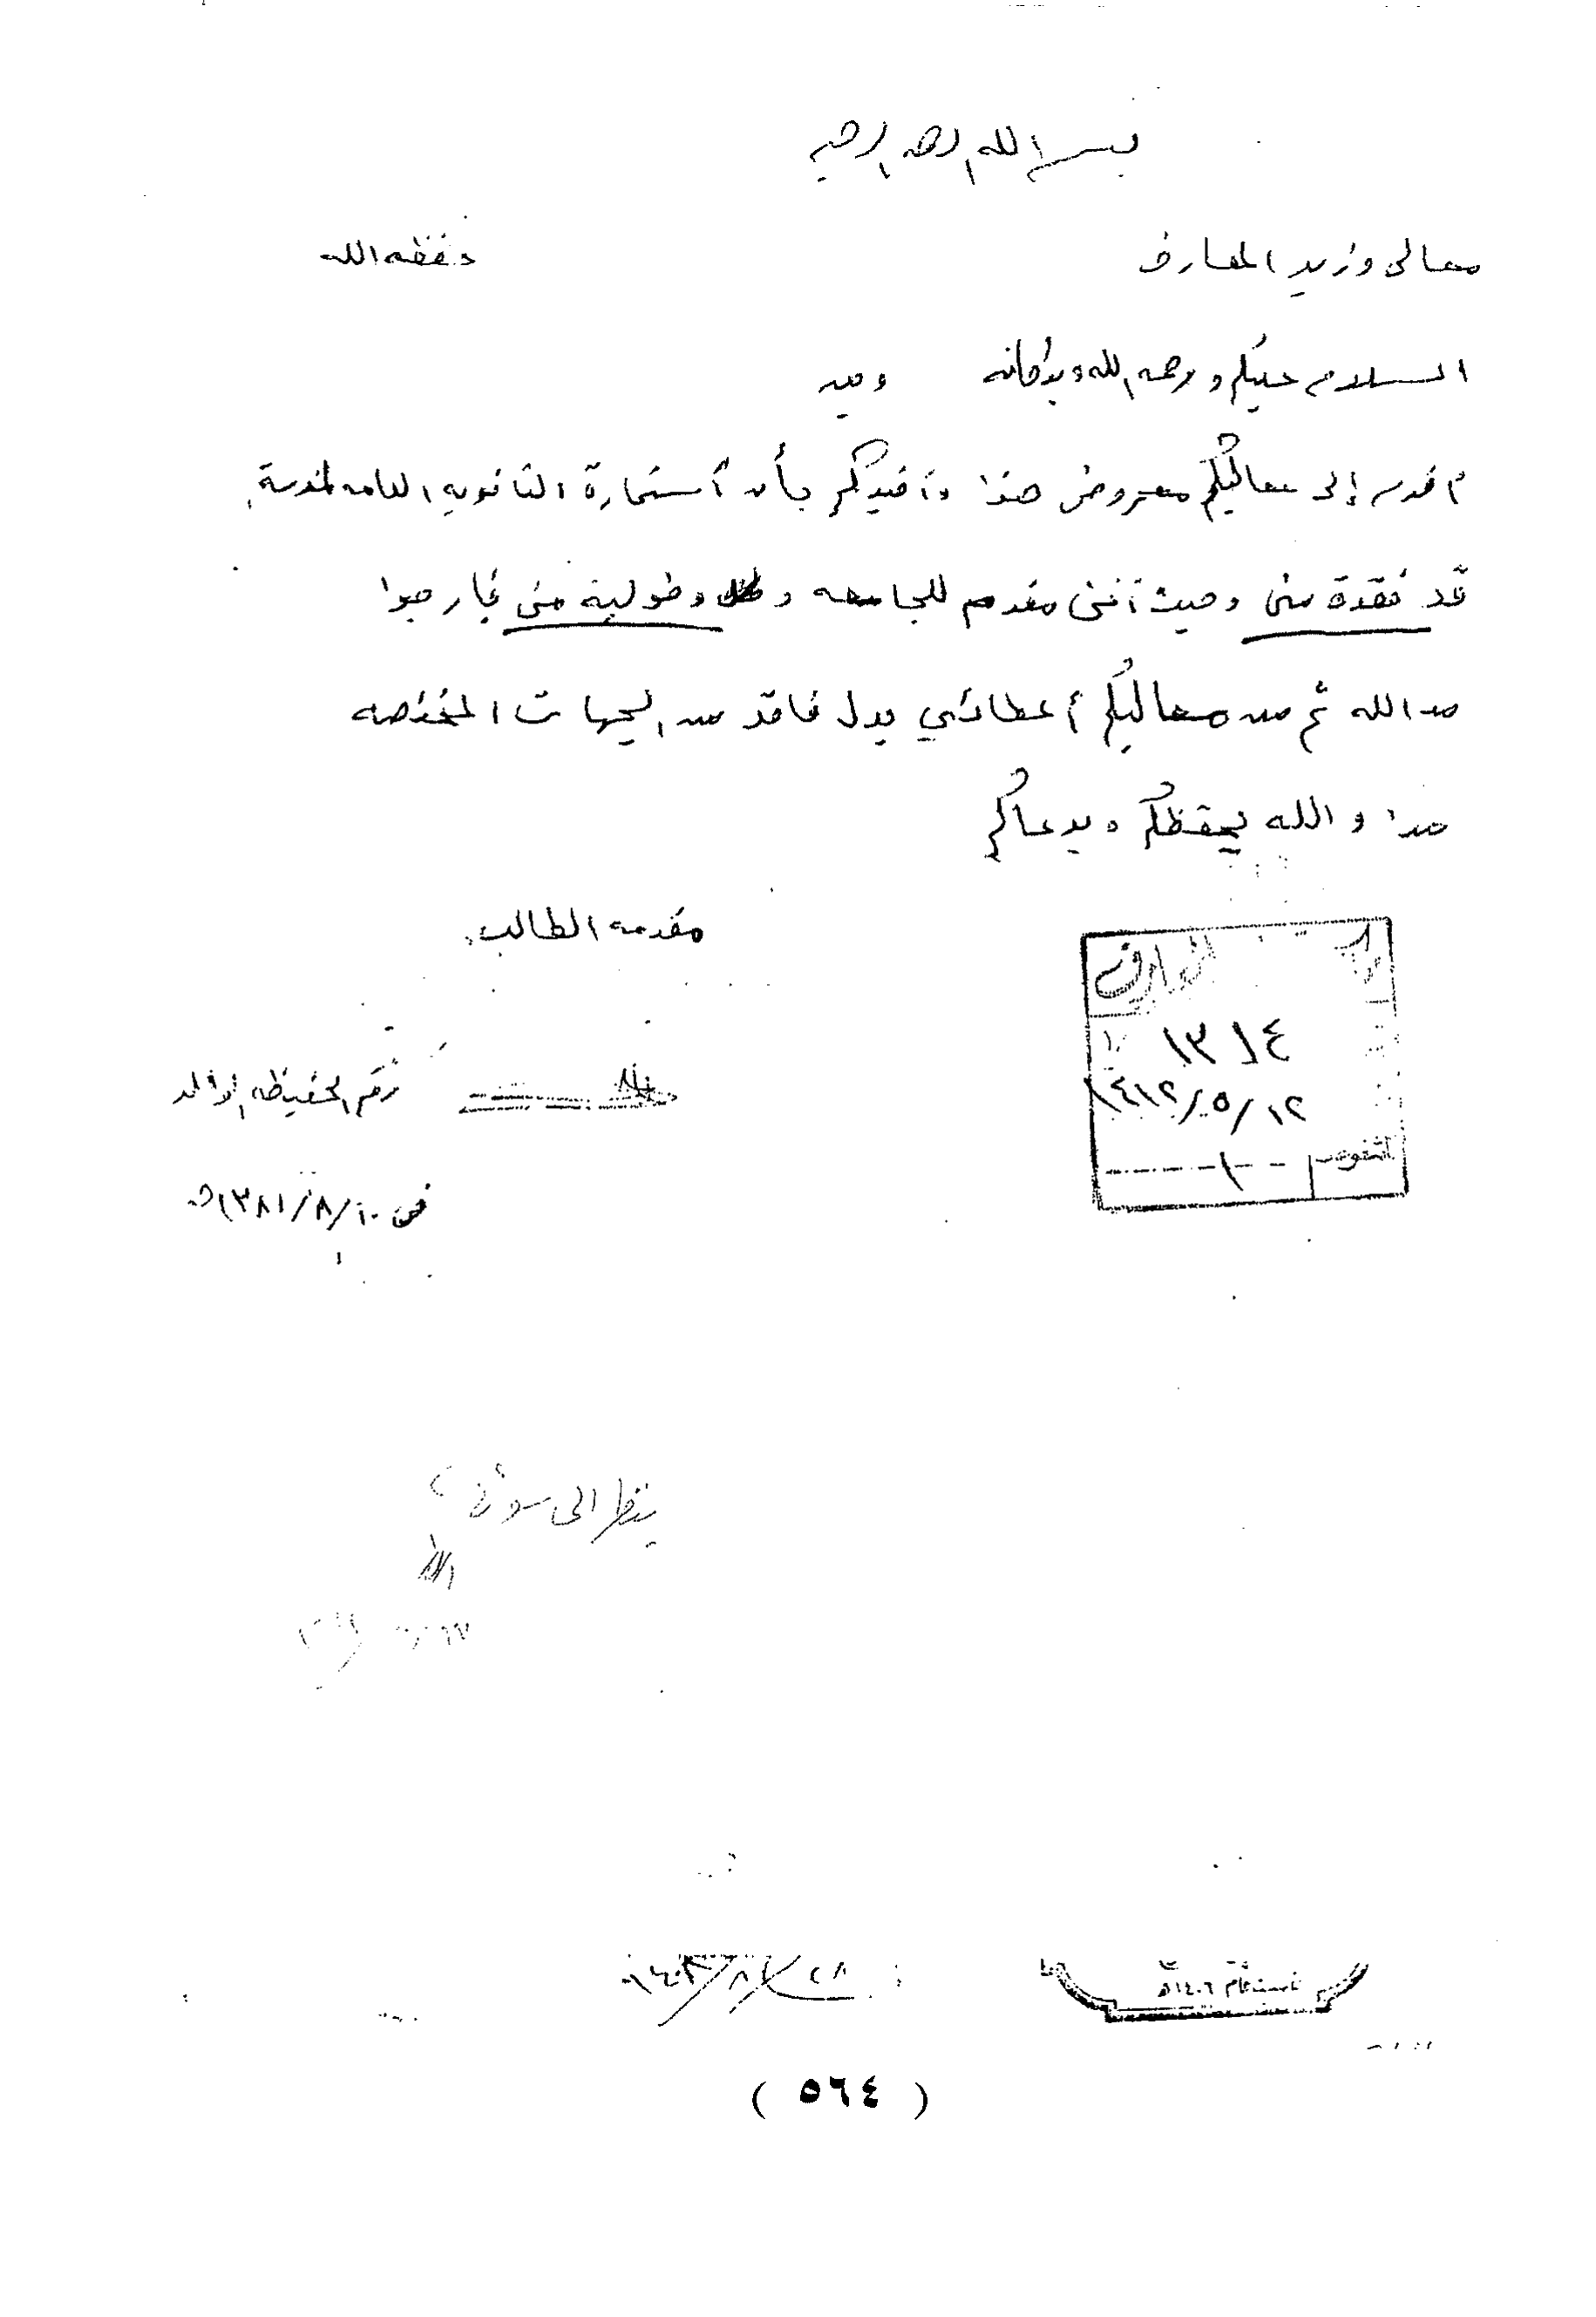 بسم الله الرحمن الرحيم
معالي وزير المعارف حفظه الله
السلام عليكم ورحمة الله وبركاته وبعد
أقدم إلى معاليكم معروض هذا وأفيدكم بأن أستمارة الثانوية العامه
قد فقدة مني وحيث أنني مقدم للجامعه وطولبة مني لهذا أرجوا
من الله ثم من معاليكم أعطائي بدل فاقد من الجهات المختصه
هذا والله يحفظكم ويرعاكم
مقدمه الطالب
المعارف
١٣١٤
١٤١٢/٥/١٢
١
رقم الحفيظه
في ١٣٨١/٨/١٠ه
ينظر الى
١٤٠٦هـ
( ٥٦٤ )